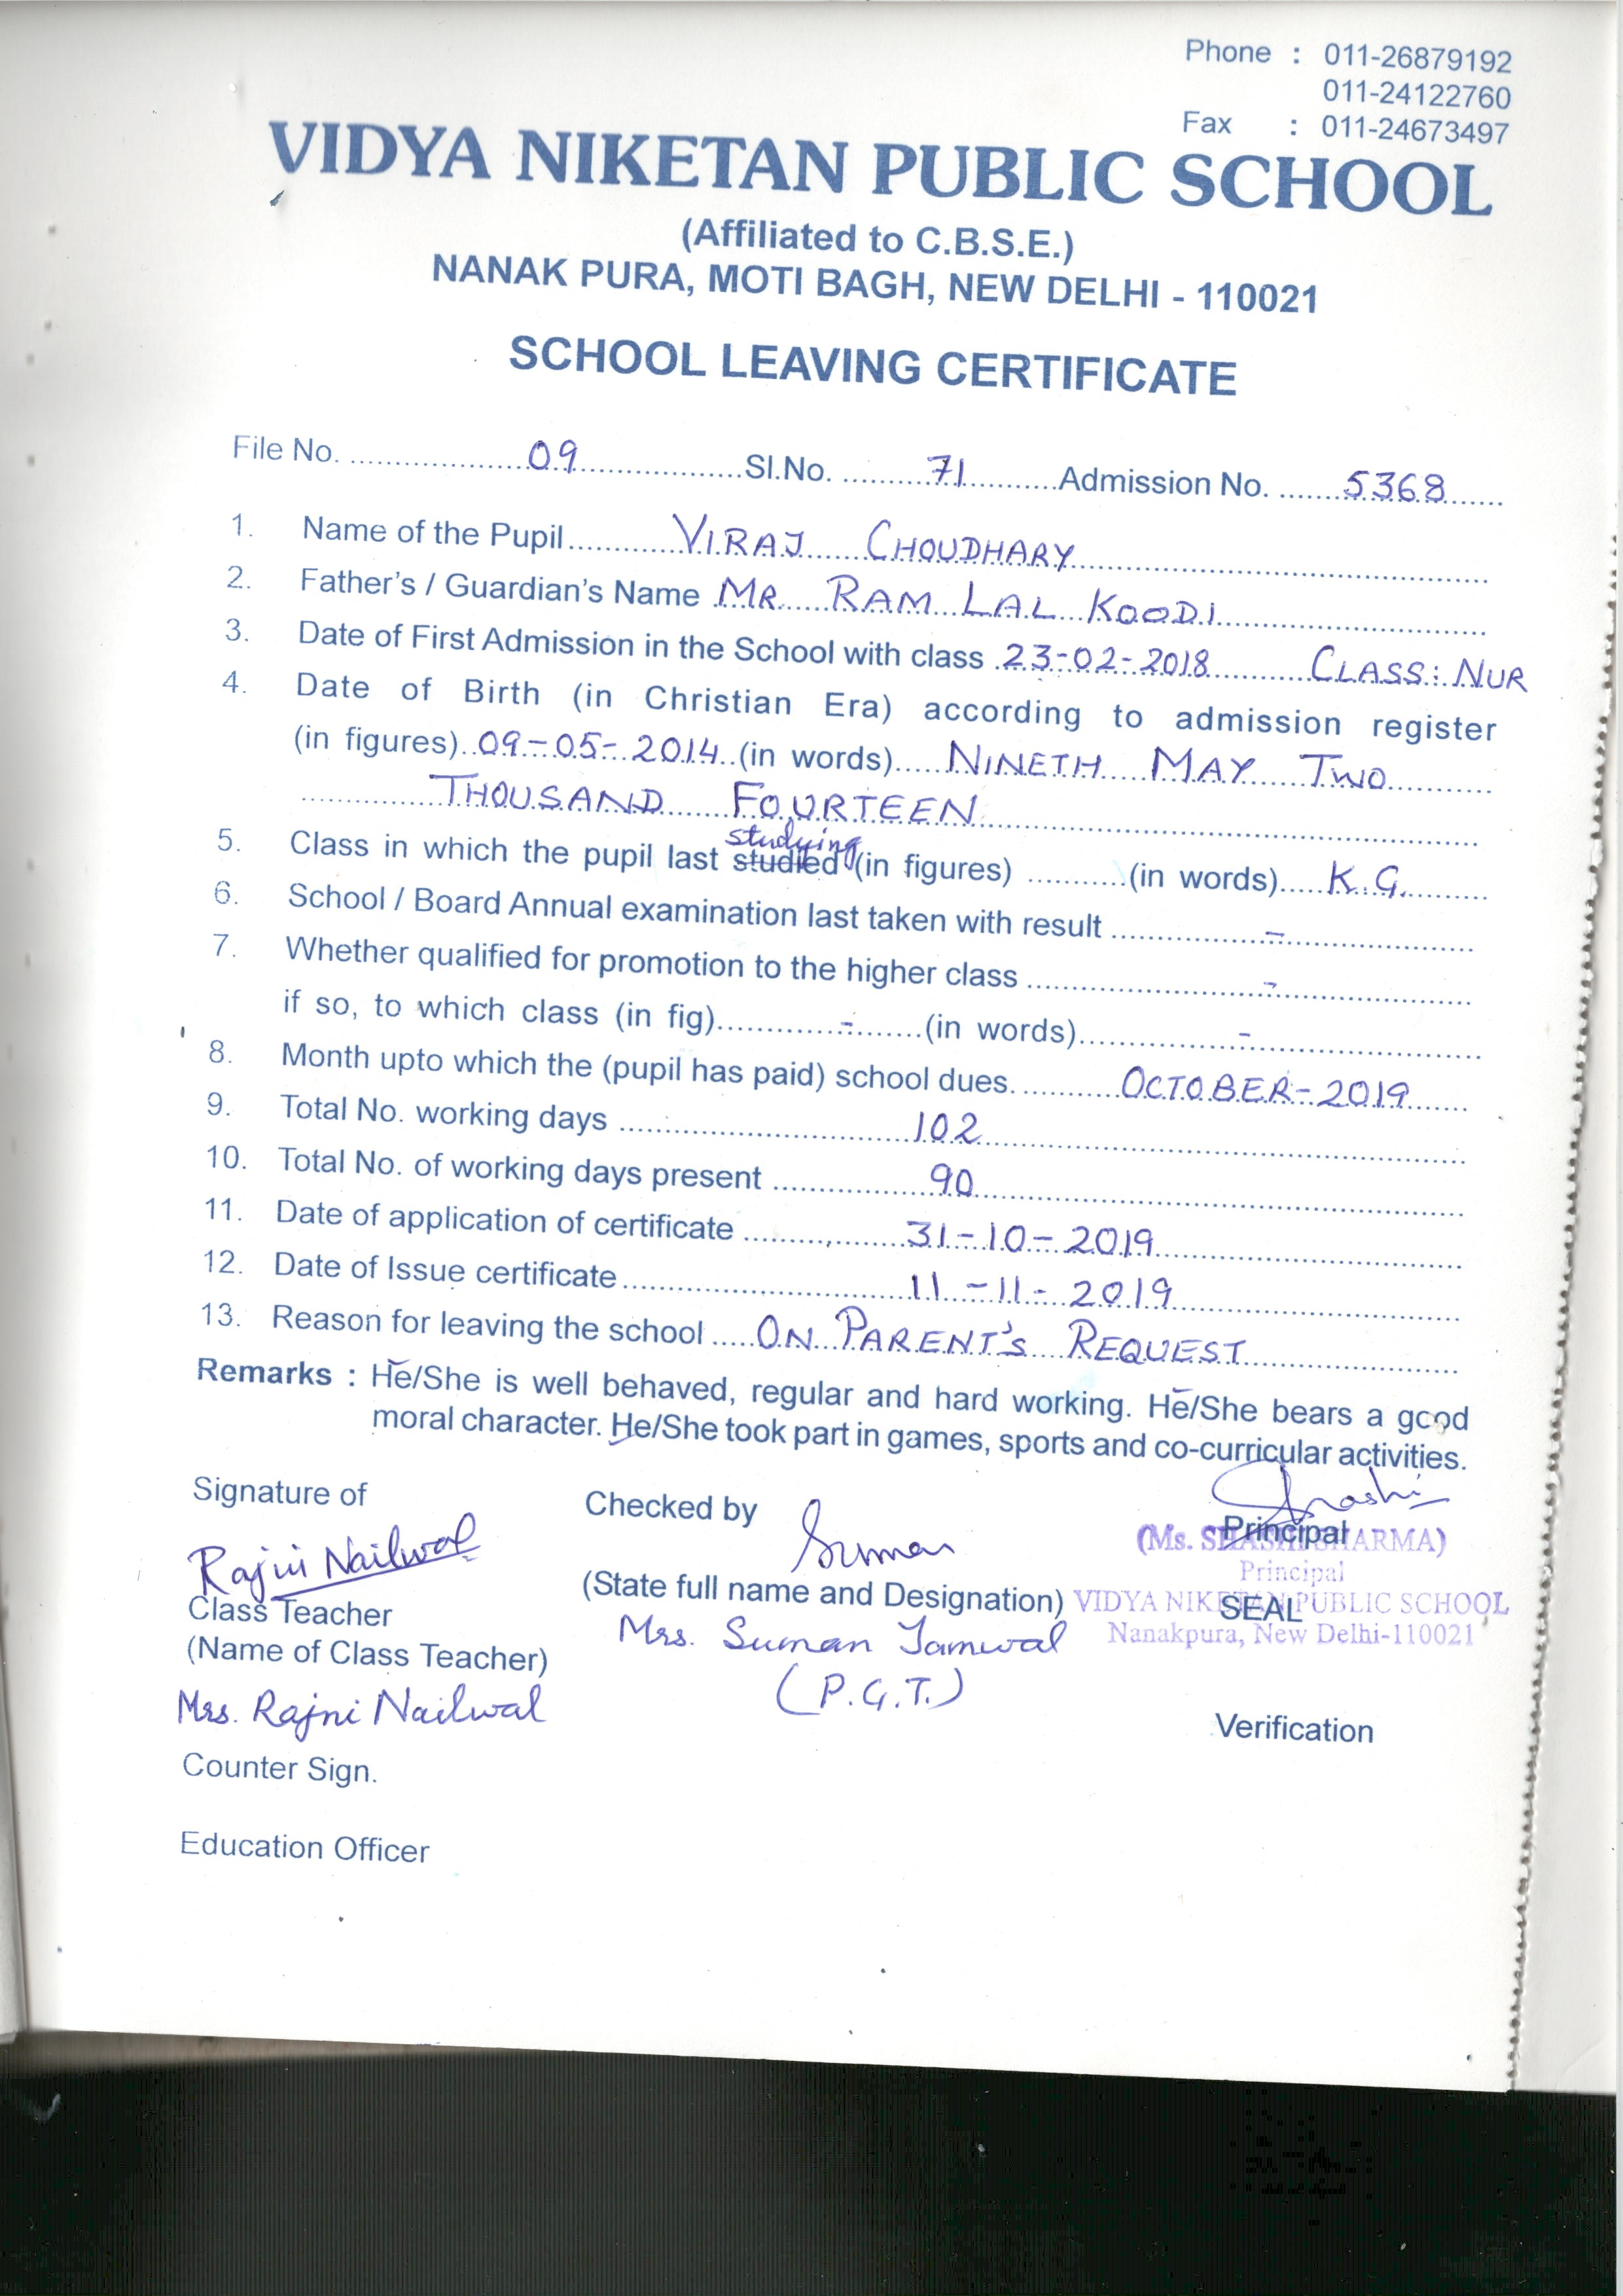 Phone : 011-26879192
011-24122760
Fax : 011-24673497
VIDYA NIKETAN PUBLIC SCHOOL
(Affiliated to C.B.S.E.)
NANAK PURA, MOTI BAGH, NEW DELHI - 110021
SCHOOL LEAVING CERTIFICATE
File No. 09 Sl.No. 71 Admission No. 5368
1. Name of the Pupil VIRAJ CHOUDHARY
2. Father's / Guardian's Name MR. RAM LAL KOODI
3. Date of First Admission in the School with class 23-02-2018 CLASS: NUR
4. Date of Birth (in Christian Era) according to admission register
(in figures) 09-05-2014 (in words) NINETH MAY TWO
THOUSAND FOURTEEN
studying
5. Class in which the pupil last studied (in figures) (in words) K.G.
6. School / Board Annual examination last taken with result -
7. Whether qualified for promotion to the higher class -
if so, to which class (in fig) - (in words) -
8. Month upto which the (pupil has paid) school dues. OCTOBER-2019
9. Total No. working days 102
10. Total No. of working days present 90
11. Date of application of certificate 31-10-2019
12. Date of Issue certificate 11-11-2019
13. Reason for leaving the school ON PARENT'S REQUEST
Remarks : He/She is well behaved, regular and hard working. He/She bears a good
moral character. He/She took part in games, sports and co-curricular activities.
Signature of Checked by Shashi
Rajni Nailwal Suman Principal
(Ms. SHASHI SHARMA)
Principal
Class Teacher (State full name and Designation) VIDYA NIKETAN PUBLIC SCHOOL
SEAL
(Name of Class Teacher) Mrs. Suman Jamwal Nanakpura, New Delhi-110021
Mrs. Rajni Nailwal (P.G.T.)
Verification
Counter Sign.
Education Officer